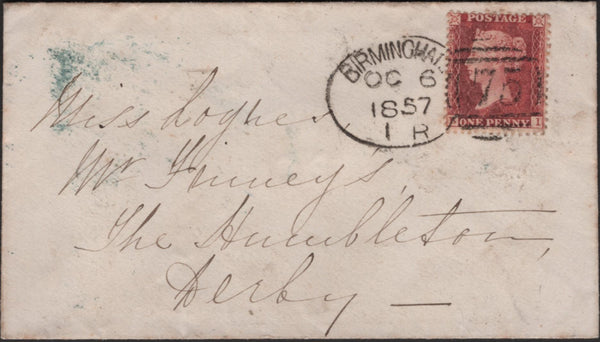 BIRMINGHAM
OC 6
1857
1 R
75
POSTAGE
ONE PENNY
I
Miss
Mr Finney's,
The Humbleton,
Derby —